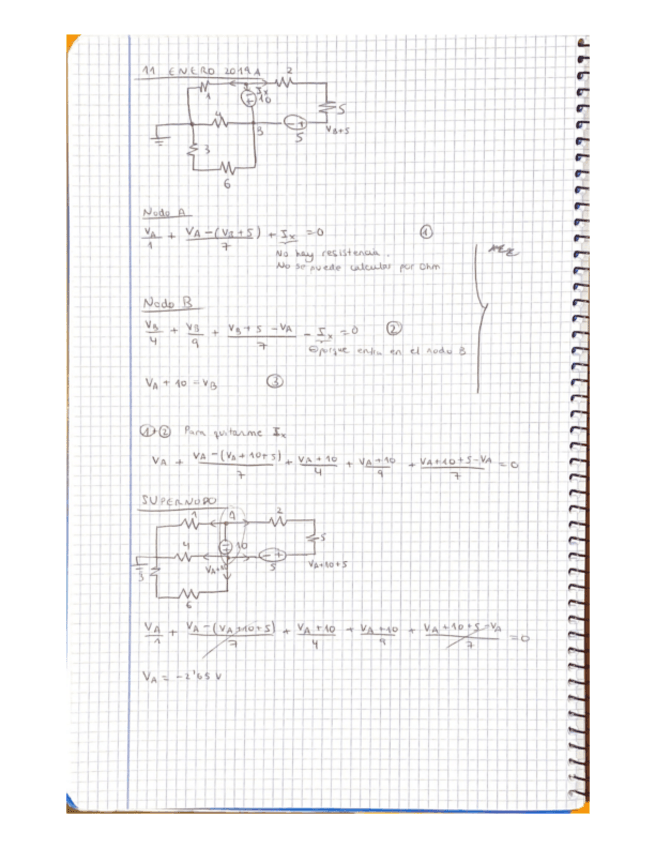 11 ENERO 2019A
2
1
Ix
10
5
4
B
5
VB+5
3
6
Nodo A
VA/1 + VA-(VB+5)/7 + Ix = 0 ①
No hay resistencia.
No se puede calcular por Ohm
Nodo B
VB/4 + VB/9 + VB+5-VA/7 - Ix = 0 ②
porque entra en el nodo B
VA + 10 = VB ③
①+② Para quitarme Ix
VA + VA-(VA+10+5)/7 + VA+10/4 + VA+10/9 + VA+10+5-VA/7 = 0
SUPERNODO
1
A
2
4
10
5
5
VA+10+5
3
6
VA/1 + VA-(VA+10+5)/7 + VA+10/4 + VA+10/9 + VA+10+5-VA/7 = 0
VA = -2'65 V